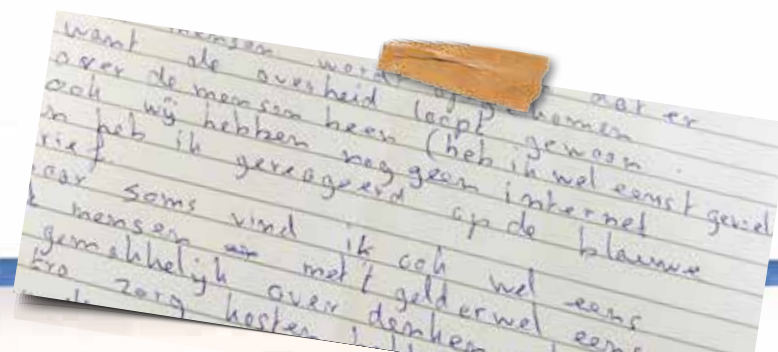 mensen word
want de overheid loopt gewoon
over de mensen heen (heb ik wel eens 't gevoel
ook wij hebben nog geen internet
n heb ik gereageerd op de blauwe
rief
aar soms vind ik ook wel eens
mensen met 't geld er wel eens
gemakkelijk over denken
zorg kosten